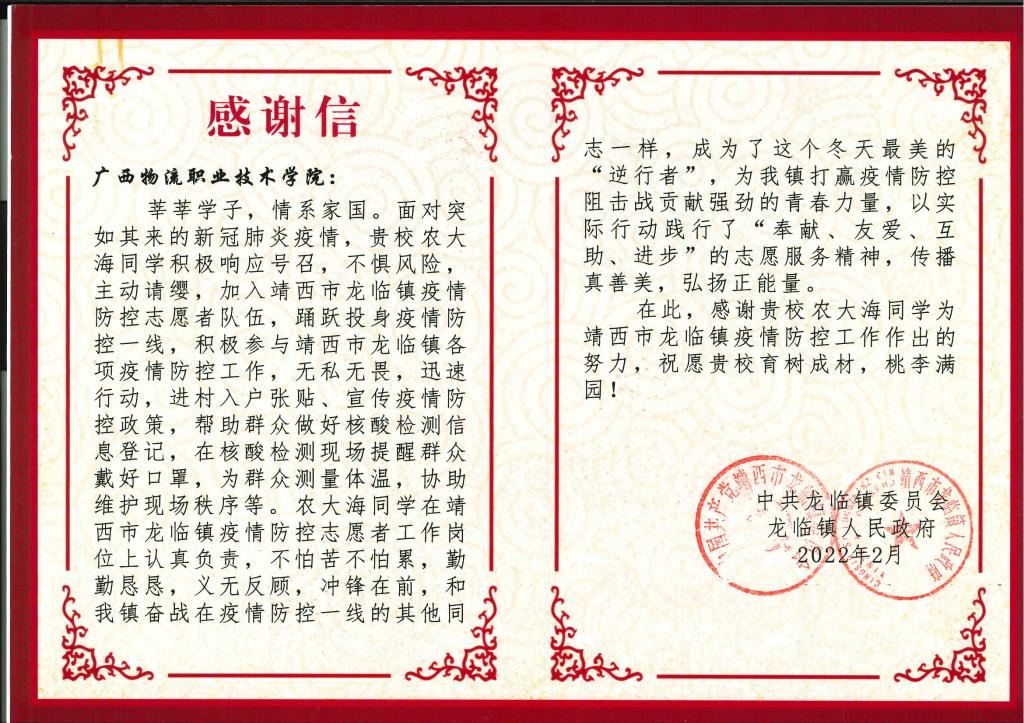 感谢信
广西物流职业技术学院：
莘莘学子，情系家国。面对突
如其来的新冠肺炎疫情，贵校农大
海同学积极响应号召，不惧风险，
主动请缨，加入靖西市龙临镇疫情
防控志愿者队伍，踊跃投身疫情防
控一线，积极参与靖西市龙临镇各
项疫情防控工作，无私无畏，迅速
行动，进村入户张贴、宣传疫情防
控政策，帮助群众做好核酸检测信
息登记，在核酸检测现场提醒群众
戴好口罩，为群众测量体温，协助
维护现场秩序等。农大海同学在靖
西市龙临镇疫情防控志愿者工作岗
位上认真负责，不怕苦不怕累，勤
勤恳恳，义无反顾，冲锋在前，和
我镇奋战在疫情防控一线的其他同
志一样，成为了这个冬天最美的
“逆行者”，为我镇打赢疫情防控
阻击战贡献强劲的青春力量，以实
际行动践行了“奉献、友爱、互
助、进步”的志愿服务精神，传播
真善美，弘扬正能量。
在此，感谢贵校农大海同学为
靖西市龙临镇疫情防控工作作出的
努力，祝愿贵校育树成材，桃李满
园！
中共龙临镇委员会
龙临镇人民政府
2022年2月
中国共产党靖西市龙临
靖西市龙临镇人民政府